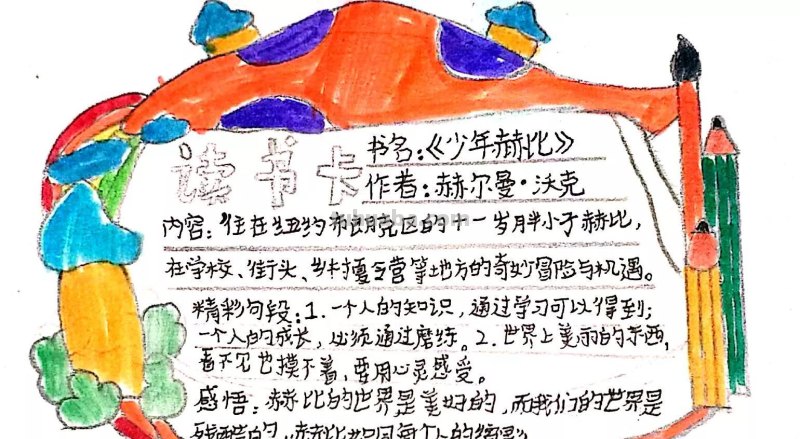 读书卡
书名:《少年赫比》
作者:赫尔曼·沃克
内容:住在纽约布朗克区的十一岁胖小子赫比,
在学校、街头、乡村夏令营等地方的奇妙冒险与机遇。
精彩句段:1.一个人的知识,通过学习可以得到;
一个人的成长,必须通过磨练。2.世界上美丽的东西,
看不见也摸不着,要用心灵感受。
感悟:赫比的世界是美好的,而我们的世界是
残酷的,赫比如同每个人的缩影